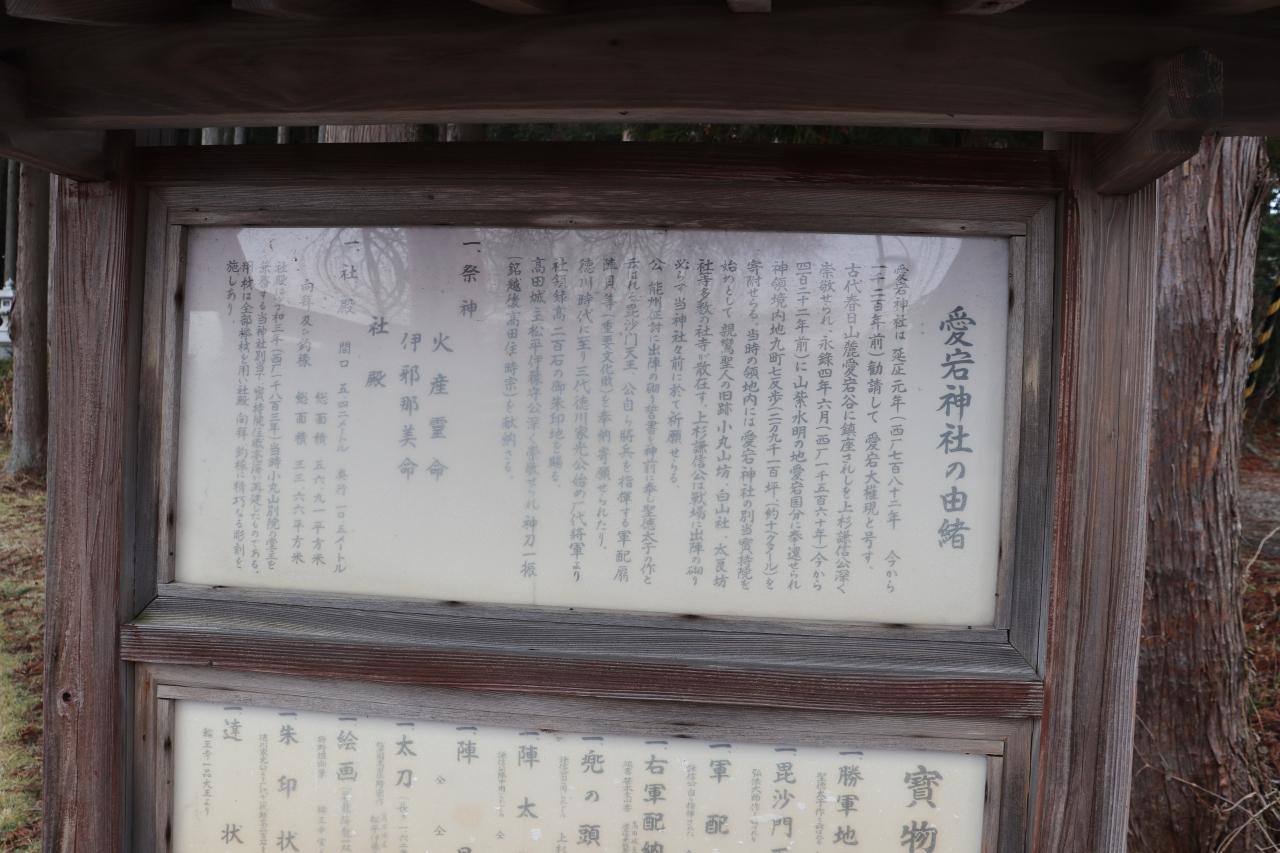 愛宕神社の由緒
愛宕神社は 延正元年（西厂七百八十二年 今から
一千二百年前）勧請して 愛宕大権現と号す。
古代春日山麓愛宕谷に鎮座されしを上杉謙信公深く
崇敬せられ、永録四年六月（西厂一千五百六十年）今から
四百二十二年前）に山紫水明の地愛宕国分に奉遷せられ
神領境内地九町七反歩（二万九千一百坪、（約十ヘクタール）を
寄附せらる。当時の領地内には愛宕神社の別当寳持院を
始めとして、親鸞聖人の旧跡 小丸山坊、白山社、太良坊
社寺多数の社寺が散在す。上杉謙信公は戦場に出陣の砌り
必らず当神社々前に於て祈願せらる。
公、能州征討に出陣の砌り誓書を神前に奉じ聖徳太子の作と
云はれし毘沙門天王、公自から将兵を指揮する軍配扇
陣貝等（重要文化財）を奉納寄願せられたり、
徳川時代に至り三代徳川家光公始め八代将軍より
社領録高二百石の御朱印地を賜る。
高田城主松平伊豫守公深く崇敬せられ 神刀一振
（銘越後高田住 時宗）を献納さる。
一、祭神
火産霊命
伊邪那美命
社殿
一、社殿 間口 五・四二メートル 奥行 一〇・五メートル
総面積 五六・九一平方米
、向拝及び釣様 総面積 三三・六六平方米
社殿は享和三年（西厂一千八百三年）当時小丸山別院の堂主を
兼務する当神社別当・寳持院住職 が再建したものである。
用材は全部欅材を用い社殿 向拝 釣様に精巧なる彫刻を
施しあり。
寳物
一、勝軍地
一、毘沙門天
弘法大師作
一、軍配
一、右軍配納
一、兜の頭
一、陣太
一、陣貝
一、太刀
一、絵画
一、朱印状
一、達状
輪王寺一品大王より